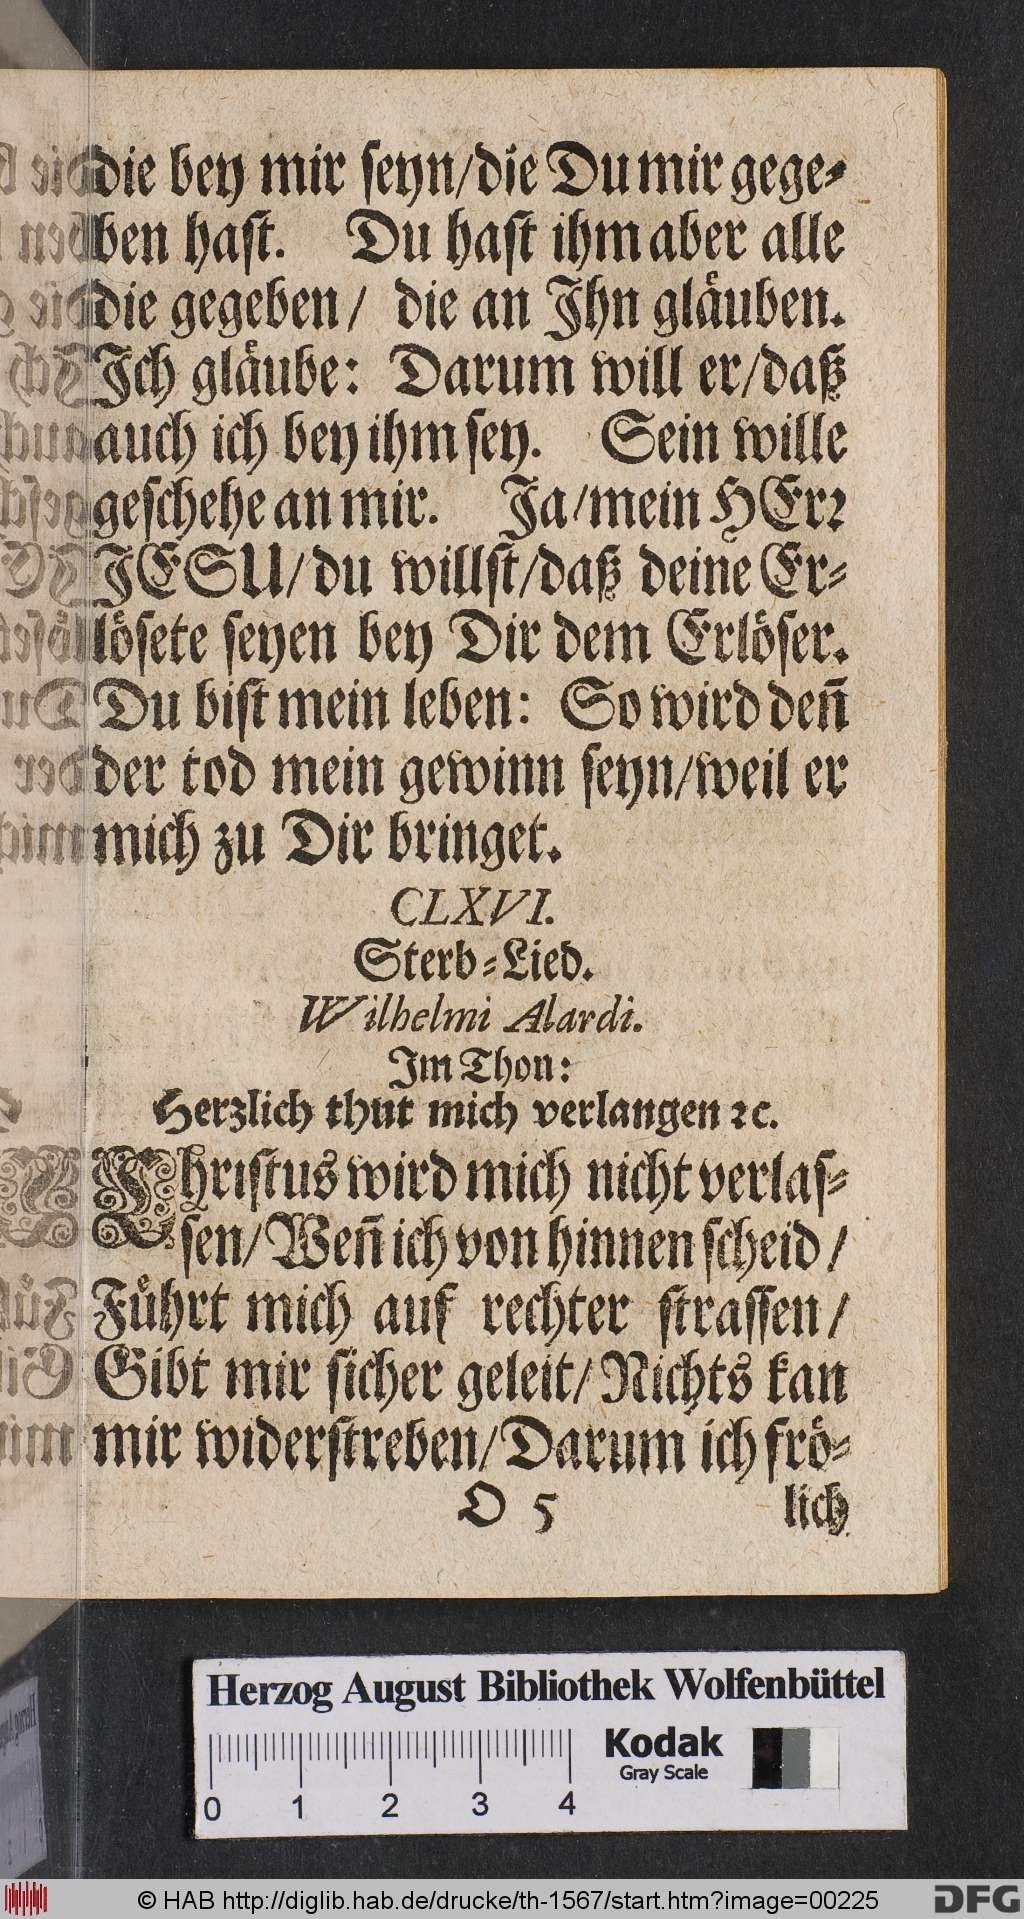 die bey mir seyn/die Du mir gege-
ben hast. Du hast ihm aber alle
die gegeben/ die an Jhn gläuben.
Jch gläube: Darum will er/daß
auch ich bey ihm sey. Sein wille
geschehe an mir. Ja/mein HErꝛ
JESU/du willst/daß deine Er-
lösete seyen bey Dir dem Erlöser.
Du bist mein leben: So wird den̄
der tod mein gewinn seyn/weil er
mich zu Dir bringet.
CLXVI.
Sterb-Lied.
Wilhelmi Alardi.
Jm Thon:
Herzlich thut mich verlangen ꝛc.
Christus wird mich nicht verlas-
sen/Wen̄ ich von hinnen scheid/
Führt mich auf rechter strassen/
Gibt mir sicher geleit/Nichts kan
mir widerstreben/Darum ich frö-
O 5 lich
Herzog August Bibliothek Wolfenbüttel
Kodak
Gray Scale
0 1 2 3 4
© HAB http://diglib.hab.de/drucke/th-1567/start.htm?image=00225
DFG